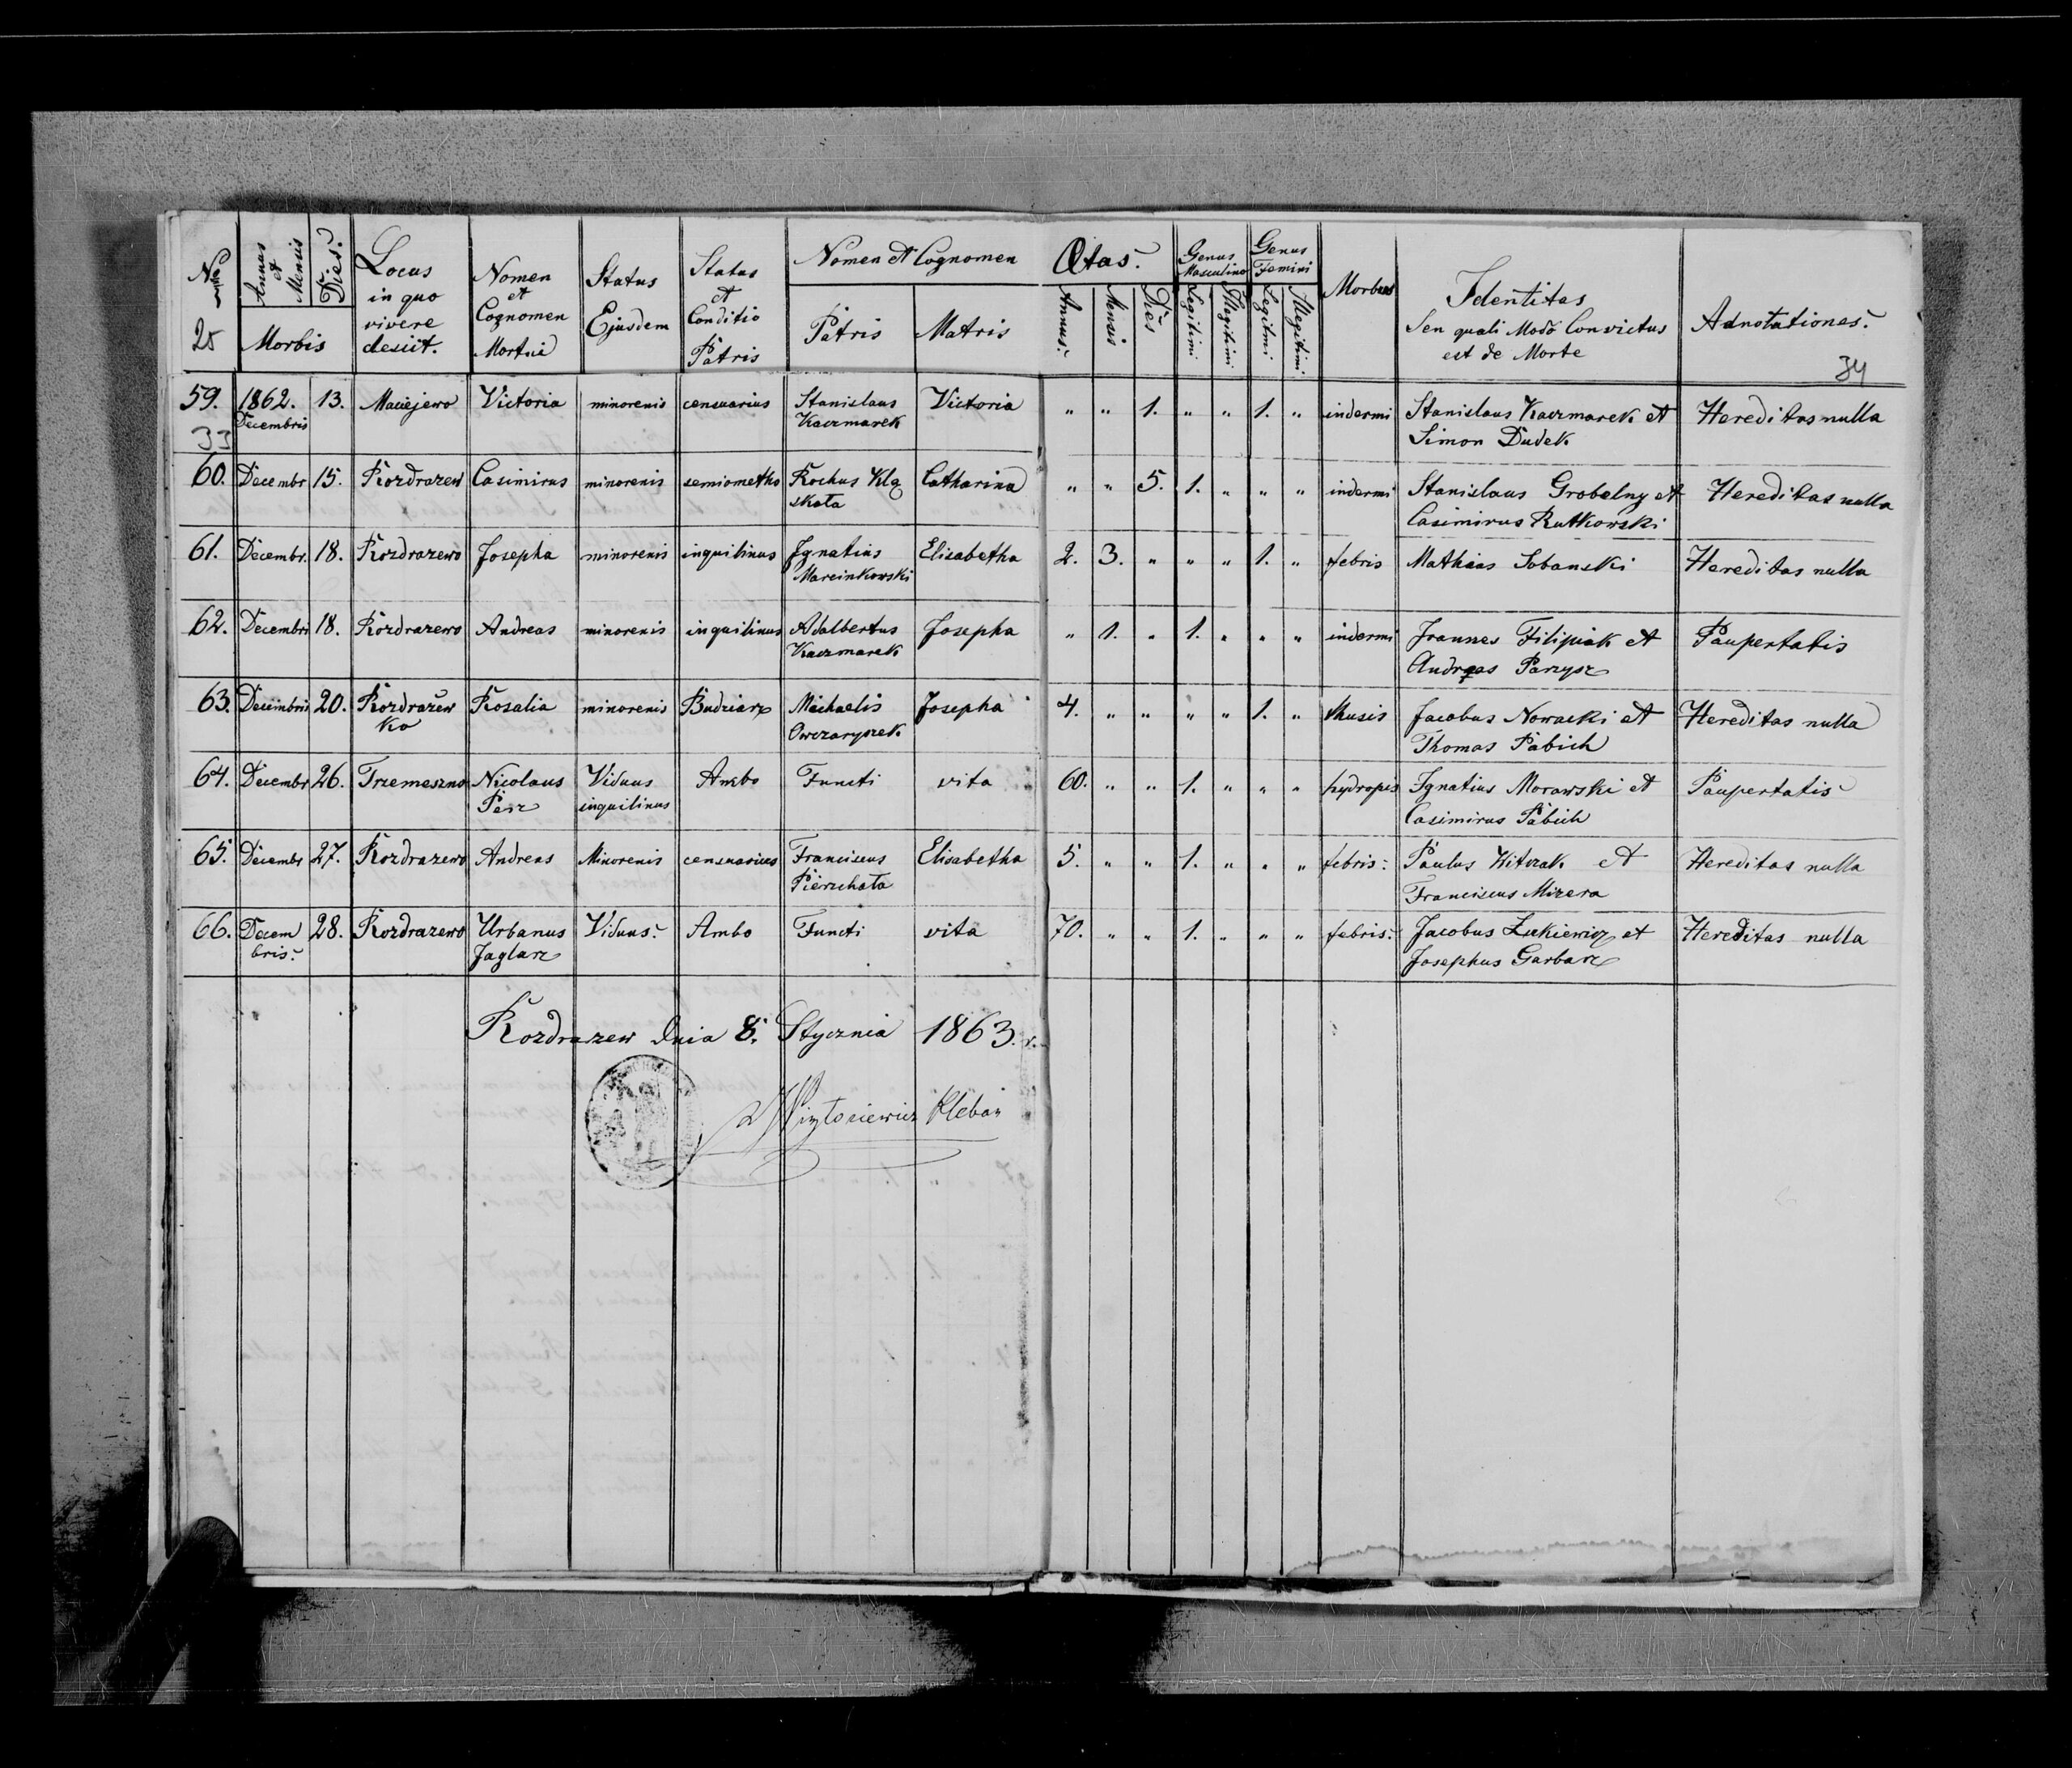 Nrus Annus et Mensis Dies Locus in quo vivere desiit. Nomen et Cognomen Mortui Status Ejusdem Status et Conditio Patris Nomen et Cognomen Ætas. Genus Masculino Genus Femini Morbus Identitas Seu quali Modo Convictus est de Morte Adnotationes.
25 Morbis Patris Matris Annus. Mensis Dies Legitimi Illegitimi Legitimi Illegitimi
34
59. 1862. 13. Maciejewo Victoria minorenis censuarius Stanislaus Victoria " " 1. " " 1. " indermi Stanislaus Kaczmarek et Hereditas nulla
Decembris Kaczmarek Simon Dudek
33
60. Decembr 15. Rozdrazew Casimirus minorenis semiometho Rochus Klą Catharina " " 5. 1. " " " indermi Stanislaus Grobelny et Hereditas nulla
skota Casimirus Rutkowski
61. Decembr. 18. Rozdrazewo Josepha minorenis inquilinus Ignatius Elisabetha 2. 3. " " " 1. " febris Mathias Sobanski Hereditas nulla
Marcinkowski
62. Decembri 18. Rozdrazewo Andreas minorenis inquilinus Adalbertus Josepha " 1. " 1. " " " indermi Joannes Filipiak et Paupertatis
Kaczmarek Andreas Parzysz
63. Decembri 20. Rozdrazew Rosalia minorenis Budziarz Michaelis Josepha 4. " " " " 1. " thusis Jacobus Nowacki et Hereditas nulla
ko Owczaryszek Thomas Pabich
64. Decembr 26. Trzemeszno Nicolaus Viduus Ambo Functi vita 60. " " 1. " " " hydropis Ignatius Morawski et Paupertatis
Perz inquilinus Casimirus Pabich
65. Decembr 27. Rozdrazewo Andreas Minorenis censuarius Franciscus Elisabetha 5. " " 1. " " " febris. Paulus Witczak et Hereditas nulla
Pierzchata Franciscus Mizera
66. Decem 28. Rozdrazewo Urbanus Viduus. Ambo Functi vita 70. " " 1. " " " febris. Jacobus Lukiewicz et Hereditas nulla
bris. Jaglarz Josephus Garbarz
Rozdrazew dnia 8. Stycznia 1863. r.
Pleban